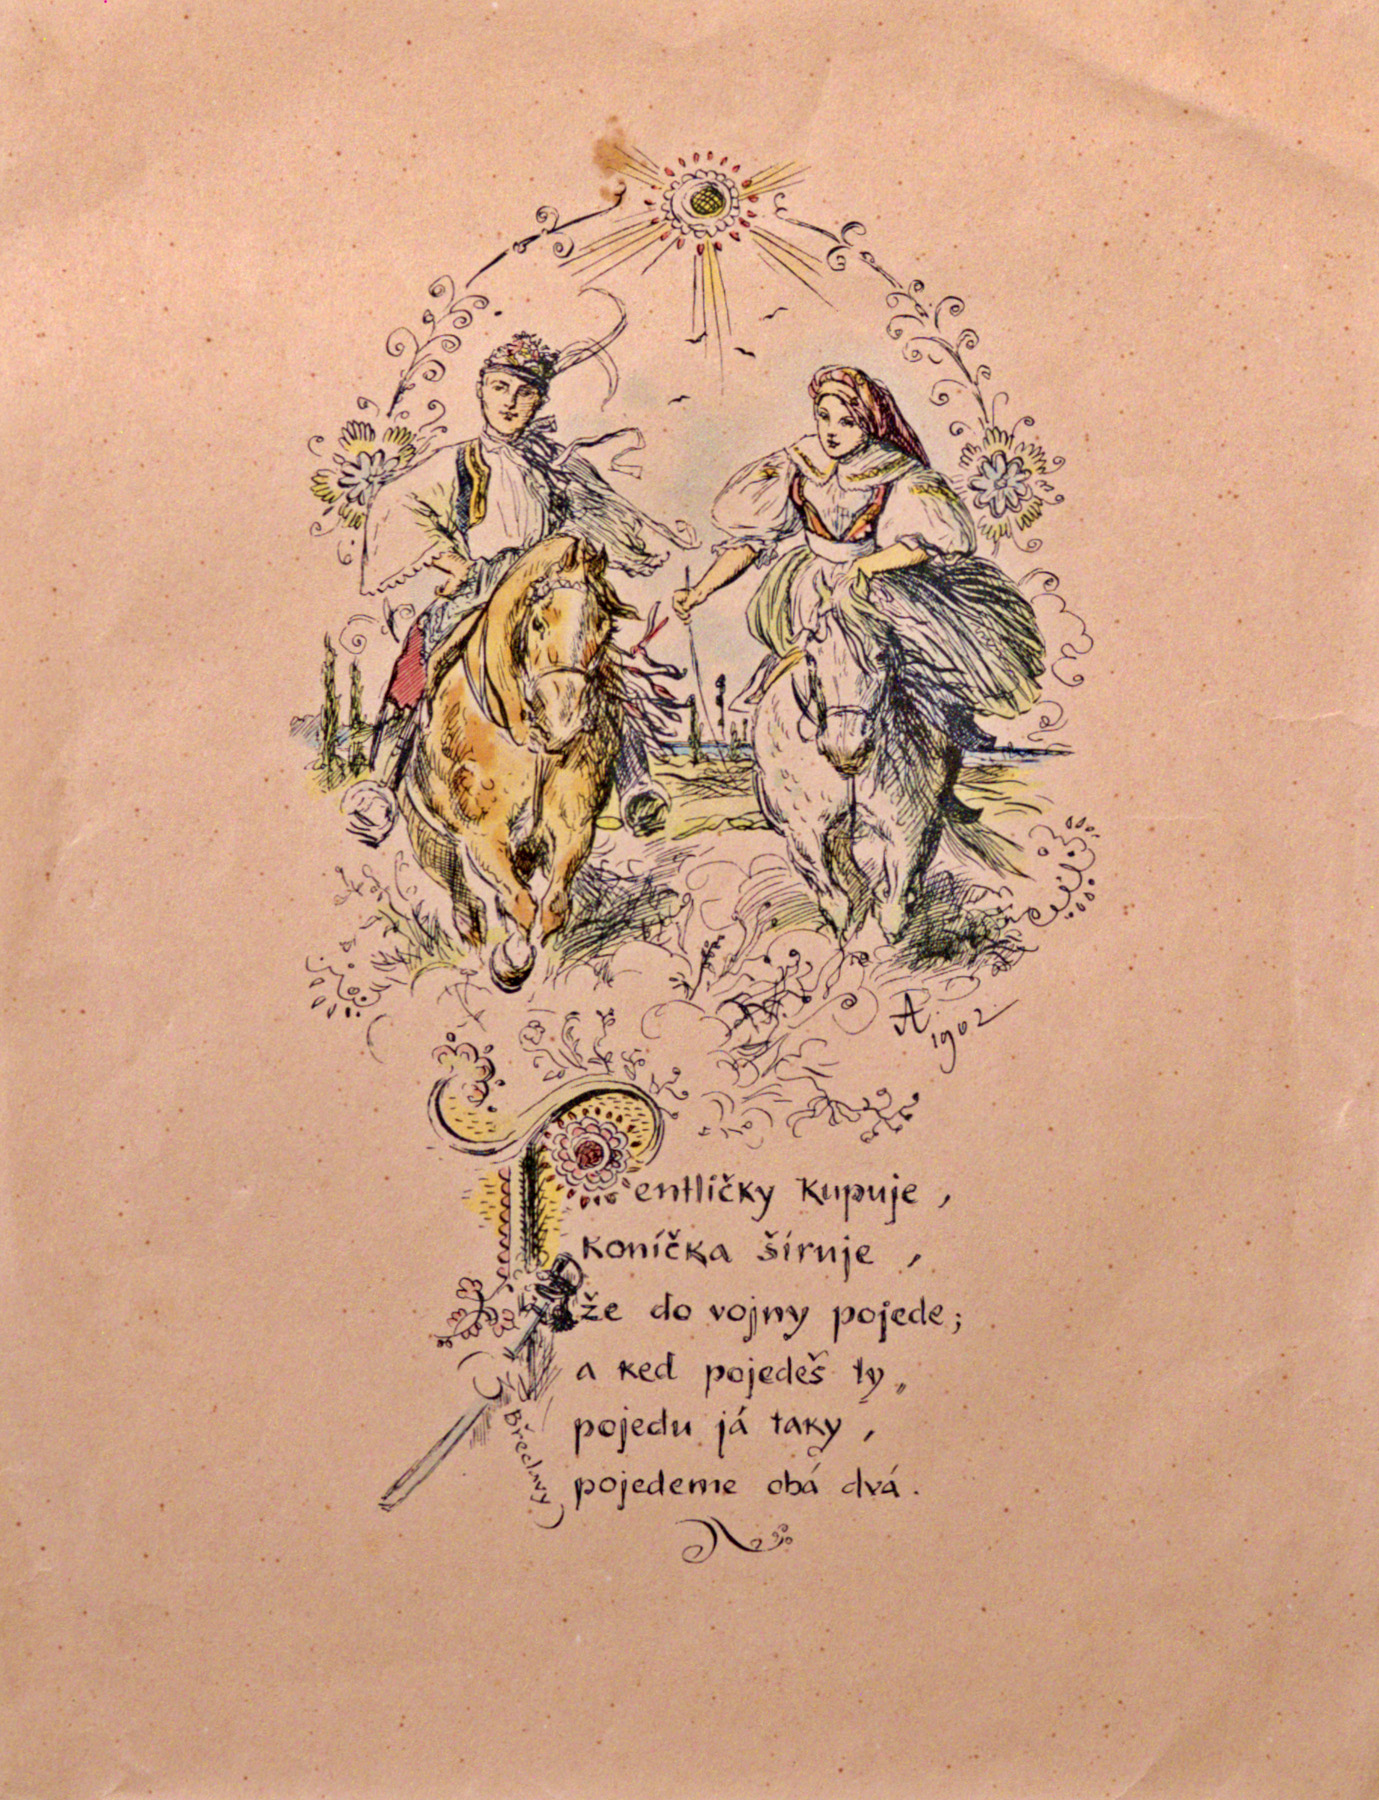 A 1902.
Fentličky kupuje,
koníčka šíruje,
že do vojny pojede;
a keď pojedeš ty,
pojedu já taky,
pojedeme obá dvá.
Břeclavy